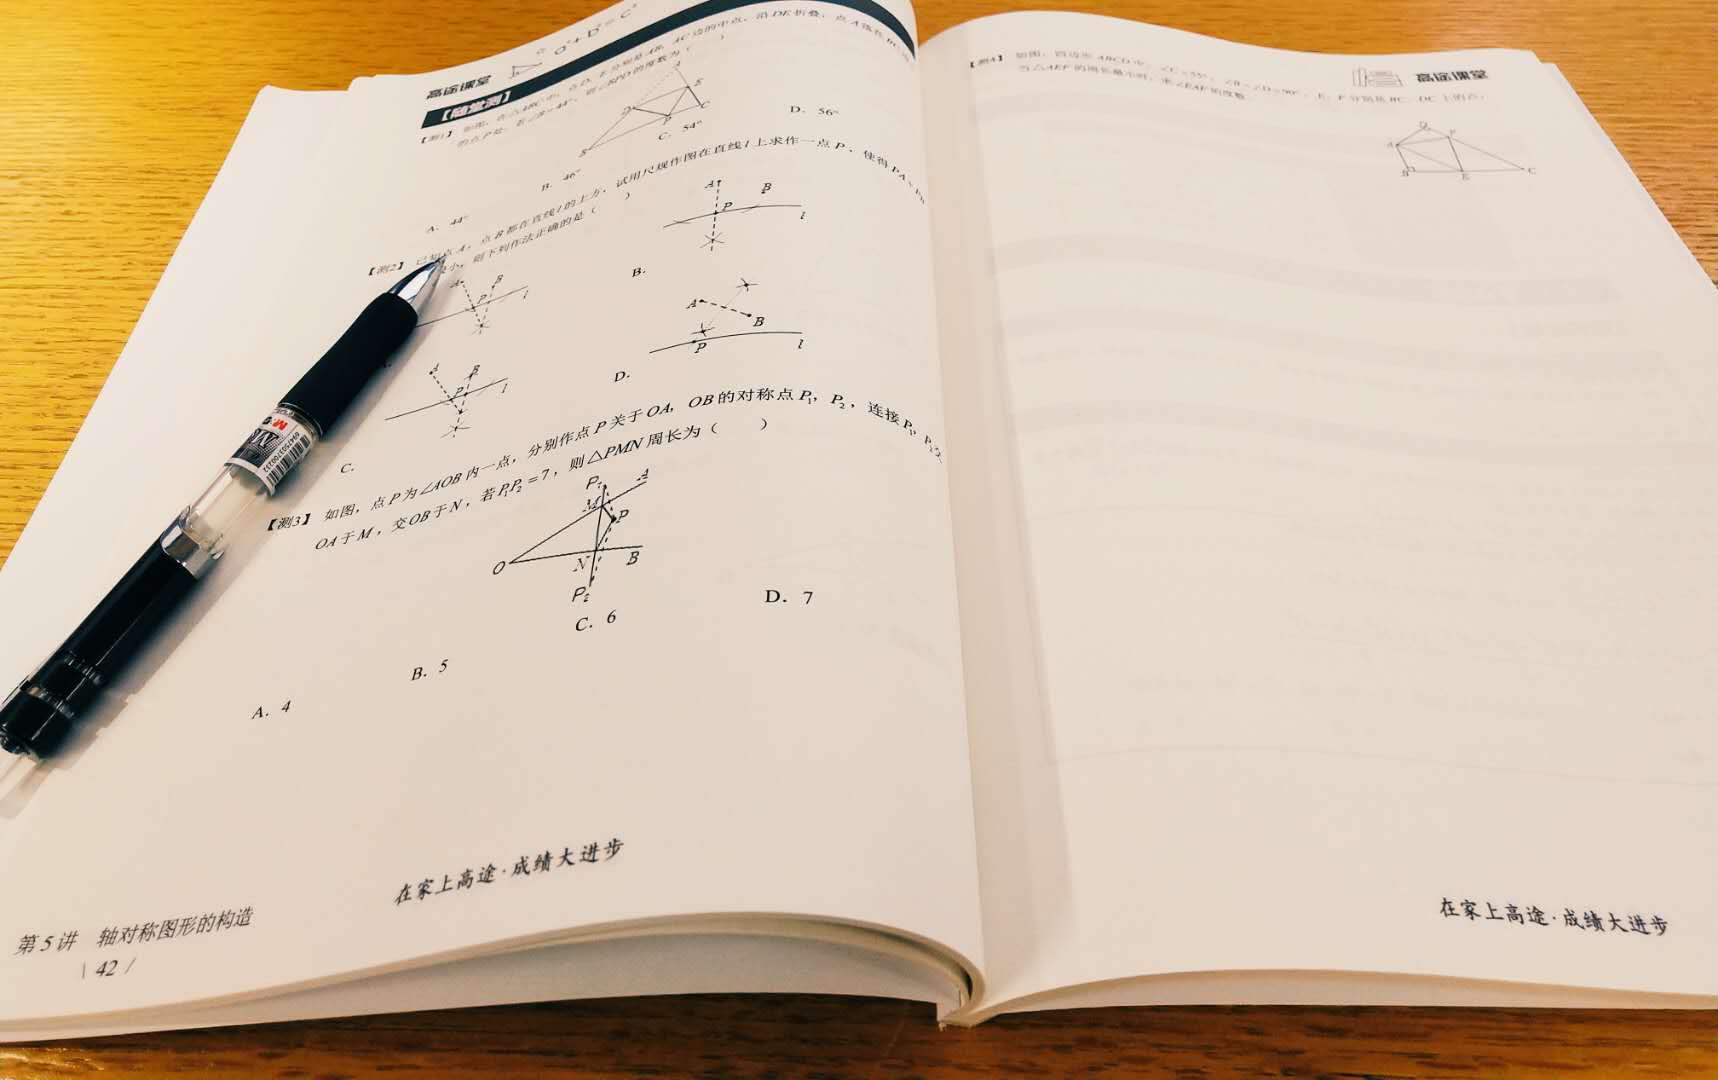 a²+b²=c²
高途课堂
【随堂测】
【测1】 如图，在△ABC中，点D，E分别是AB，AC边的中点，沿DE折叠，点A落在BC
的点P处，若∠B=44°，则∠BPD的度数为（ ）
A
D
E
B
P
C
A. 44°
B. 46°
C. 54°
D. 56°
【测2】 已知点A，点B都在直线l的上方，试用尺规作图在直线l上求作一点P，使得PA+
小，则下列作法正确的是（ ）
A
B
P
l
A
B
P
l
B.
A
B
P
l
A
B
P
l
C.
D.
【测3】 如图，点P为∠AOB内一点，分别作点P关于OA，OB的对称点P₁，P₂，连接P₁
OA于M，交OB于N，若P₁P₂=7，则△PMN周长为（ ）
P₁
A
M
P
O
N
B
P₂
A. 4
B. 5
C. 6
D. 7
在家上高途·成绩大进步
第5讲 轴对称图形的构造
\ 42 /
高途课堂
【测4】 如图，四边形ABCD中，∠B=∠D=90°，E，F分别是BC，DC上的点，
当△AEF的周长最小时，求∠EAF的度数
D
F
A
B
E
C
在家上高途·成绩大进步
694750370232